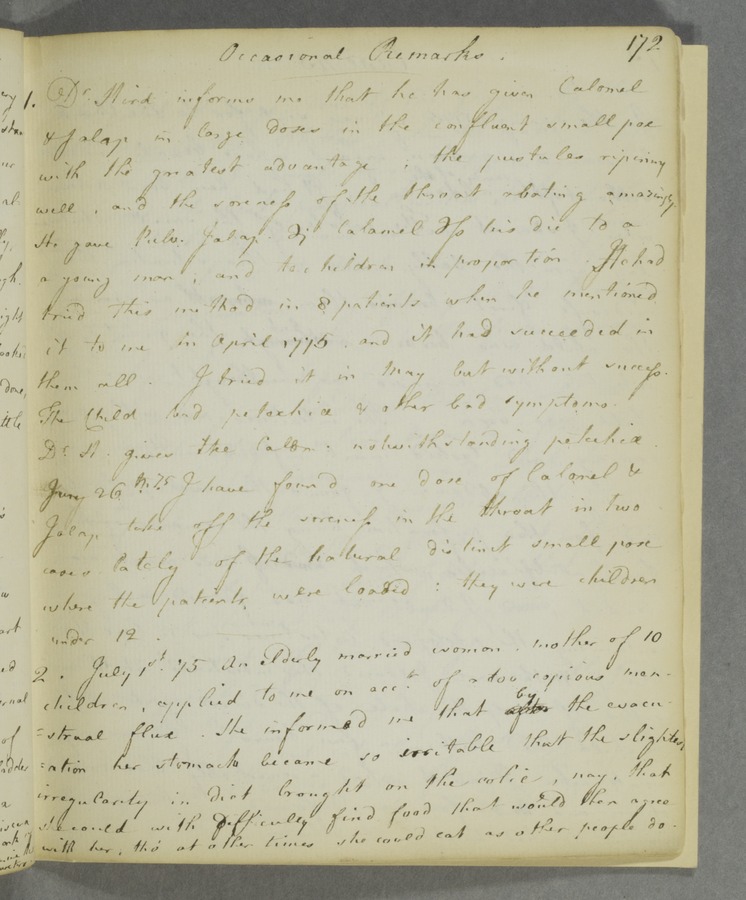 Occasional Remarks. 172
1. Dr. informs me that he has given Calomel
& Jalap in large doses in the confluent small pox
with the greatest advantage; the pustules ripining
well, and the soreness of the throat abating amazingly.
He gave Pulv. Jalap. Calomel bis die to a
a young man, and to children in proportion. He had
tried this method in 8 patients when he mentioned
it to me in April 1775. and it had succeeded in
them all. I tried it in May but without success.
The Child had petechiæ & other bad symptoms.
Dr. St. gives the Calom. notwithstanding petechiæ.
26th. 75 I have found one dose of Calomel &
Jalap take off the soreness in the throat in two
cases lately of the natural distinct small pox
where the patients were loaded: they were children
under 12.
2. July 1st. 75 An elderly married woman. mother of 10
children, applied to me on acct. of a too copious men-
=strual flux. She informed me that by the evacu-
=ation her stomach became so irritable that the slightest
irregularity in diet brought on the colic, nay, that
she could with difficulty find food that would then agree
with her, tho' at other times she could eat as other people do.